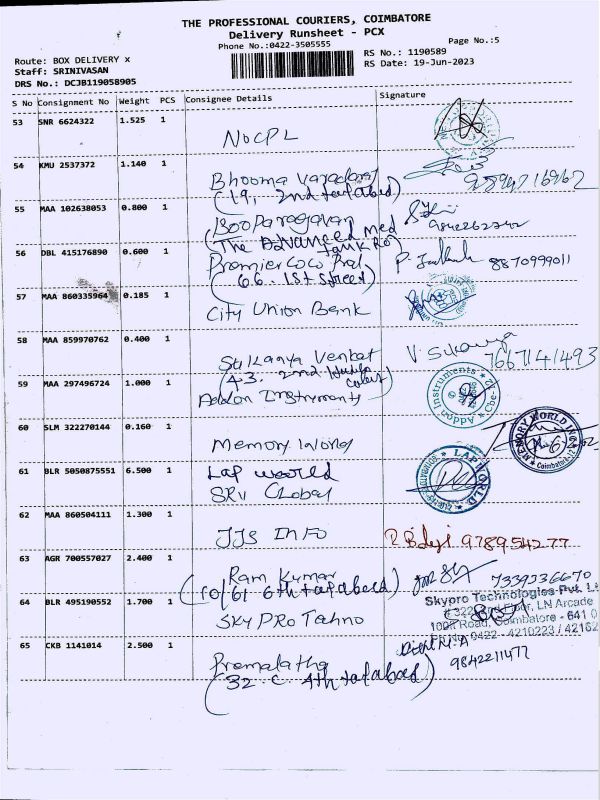 THE PROFESSIONAL COURIERS, COIMBATORE
Delivery Runsheet - PCX
Phone No.:0422-3505555
Page No.:5
Route: BOX DELIVERY x
Staff: SRINIVASAN
DRS No.: DCJB119058905
RS No.: 1190589
RS Date: 19-Jun-2023
S No Consignment No Weight PCS Consignee Details Signature
53 SNR 6624322 1.525 1
NOCPL
54 KMU 2537372 1.140 1
Bhooma Varadaraj
(19, 2nd tatabad)
55 MAA 102638053 0.800 1
Boo Paragavan
(The Advanced med
9842262742
56 DBL 415176890 0.600 1
Premier Coco Prod
(66. 1st street)
8870999011
57 MAA 860335964 0.185 1
City Union Bank
58 MAA 859970762 0.400 1
Sukanya Venkat
(43. 2nd
V Sukanya
7667141493
59 MAA 297496724 1.000 1
Addon Instruments
Addon Instruments Cbe
60 SLM 322270144 0.160 1
Memory World
MEMORY WORLD INC
Coimbatore
61 BLR 5050875551 6.500 1
Lap world
SRV Global
LAP WORLD
62 MAA 860504111 1.300 1
JJS INFO
9789554277
63 AGR 700557027 2.400 1
Ram Kumar
(10/61 6th tatabad)
7339236670
64 BLR 495190552 1.700 1
SKY PRO Tahno
Skypro Technologies Pvt. Lt
LN Arcade
100ft Road, Coimbatore - 641 0
Ph No 0422 - 4210223 / 42162
65 CKB 1141014 2.500 1
Premalatha
(32. C. 4th tatabad)
9842211477